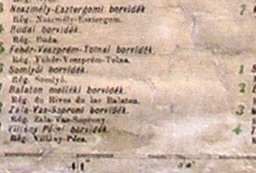 Neszmély-Esztergomi borvidék.
Rég. Neszmély-Esztergom.
Budai borvidék.
Rég. Buda.
Fehér-Veszprém-Tolnai borvidék.
Rég. Fehér-Veszprém-Tolna.
Somlyói borvidék.
Rég. Somlyó.
Balaton melléki borvidék.
Rég. du Rives du lac Balaton.
Zala-Vas-Soproni borvidék.
Rég. Zala-Vas-Soprony.
Villány Pécsi borvidék.
Rég. Villány-Pécs.